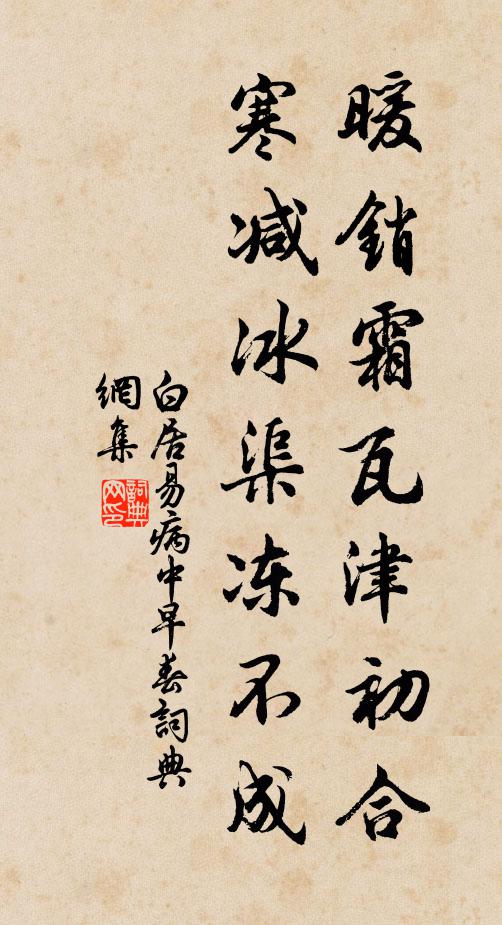 暖銷霜瓦津初合
寒減冰渠冻不成
白居易病中早春詞典
網集
詞典
网印